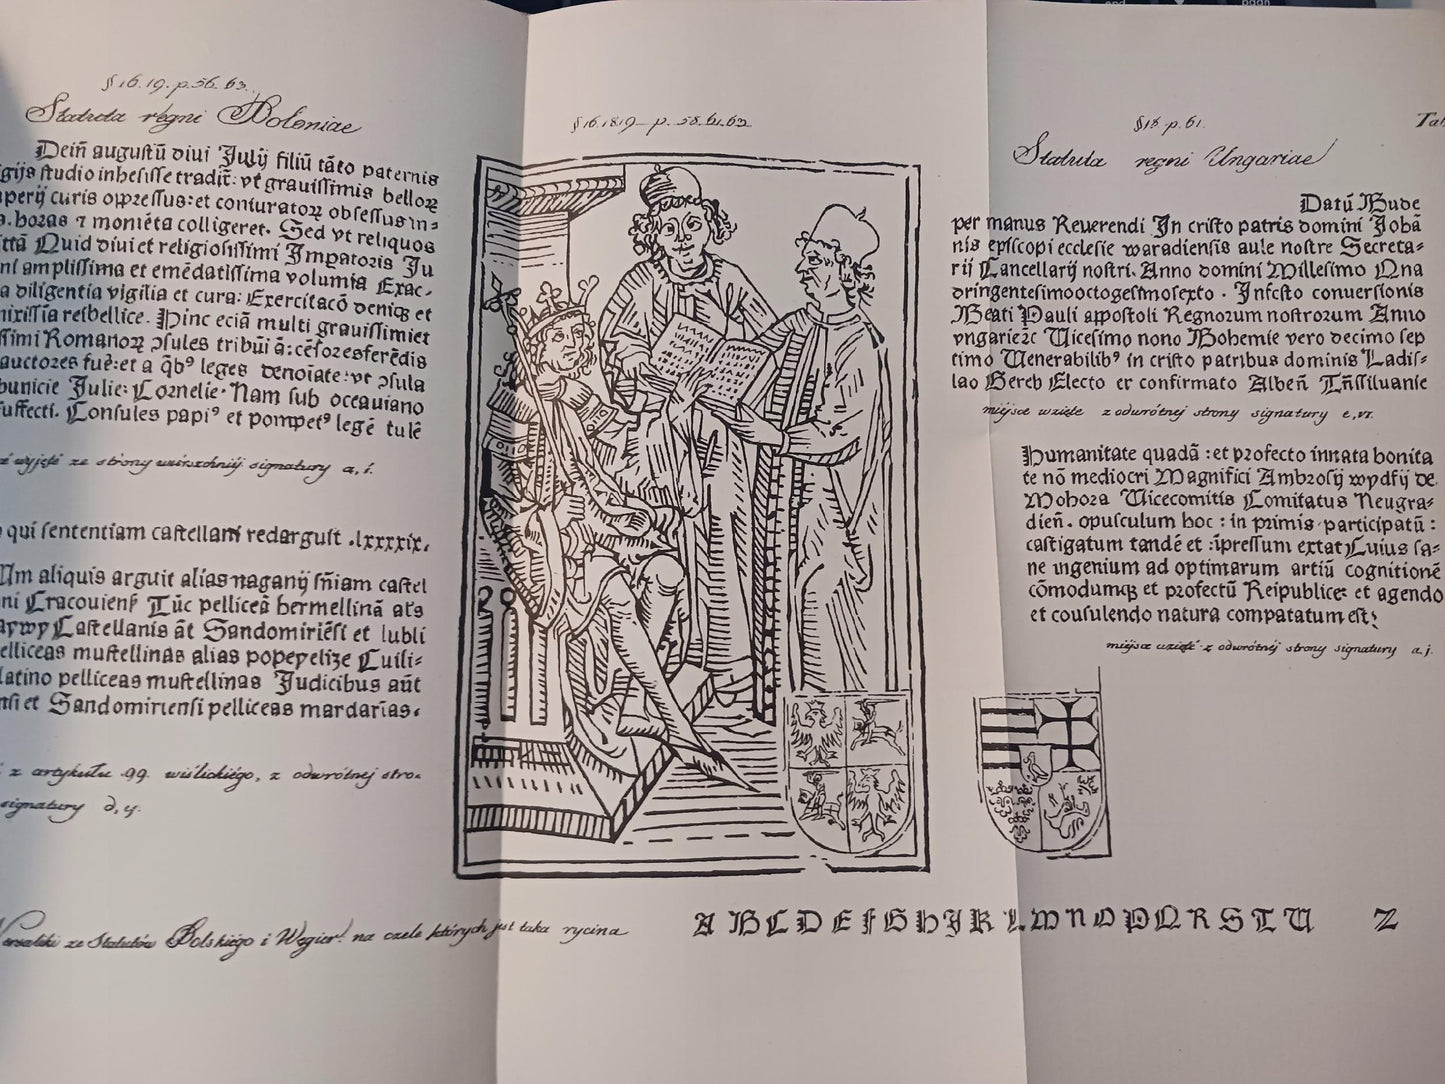 § 16. 19. p. 56. 63.
Statuta regni Poloniae
Deiñ augustū diui Julij filiū tāto paternis
studio inhesisse tradit̄: vt grauissimis belloꝝ
curis oppressus: et coniuratoꝝ obsessus in=
horas ⁊ moniēta colligeret. Sed vt reliquos
Quid diui et religiosissimi Imꝑatoris Ju
amplissima et emēdatissima volumia Exac-
diligentia vigilia et cura: Exercitacō deniqꝫ et
reibellice. Hinc eciā multi grauissimi et
Romanoꝝ ↄsules tribūi ā: cēsores ferēdis
auctores fuē: et a q̄bꝰ leges denoīate: vt ↄsula
Julie: Cornelie. Nam sub octauiano
Consules papiꝰ et pompeiꝰ legē tulē
wyjęte ze strony wierzchniéj signatury a, i.
qui sententiam castellani redarguit .lxxxxix.
aliquis arguit alias naganij sñiam castel
Cracouienẜ Tūc pelliceā hermellinā ats
Castellanis āt Sandomiriēsi et lubli
pelliceas mustellinas alias popeyelize Cuili=
latino pelliceas mustellinas Judicibus aūt
et Sandomiriensi pelliceas mardarias.
z artykułu 99. wiślickiégo, z odwrótnej stro.
signatury d, y.
§ 16. 18. 19. p. 58. 61. 62.
§ 18. p. 61. Tab
Statuta regni Ungariae
Datū Bude
per manus Reuerendi In cristo patris domini Johā
nis episcopi ecclesie waradiensis aule nostre Secreta=
rij Cancellarij nostri. Anno domini Millesimo Qua
dringentesimooctogesimosexto . Infesto conuersionis
Beati Pauli appostoli Regnorum nostrorum Anno
vngarieꝛc Uicesimo nono Bohemie vero decimo sep
timo Uenerabilibꝰ in cristo patribus dominis Ladis=
lao Gereb Electo et confirmato Albeñ Trñssiluanie
miejsce wzięte z odwrótnej strony signatury e, vi.
Humanitate quadā : et profecto innata bonita
te nō mediocri Magnifici Ambrosij wydfij de
Mohora Uicecomitis Comitatus Neugra=
dieñ. opusculum hoc : in primis participatū :
castigatum tandē et :īpressum extat Cuius sa=
ne ingenium ad optimarum artiū cognitionē
cōmodumqꝫ et profectū Reipublice: et agendo
et cousulendo natura compatatum est;
miejsce wzięte z odwrótnej strony signatury a. j.
Wersaliki ze Statutów Polskiégo i Węgier. na czele których jest taka rycina
A B C D E F G H I K L M N O P Q R S T U Z